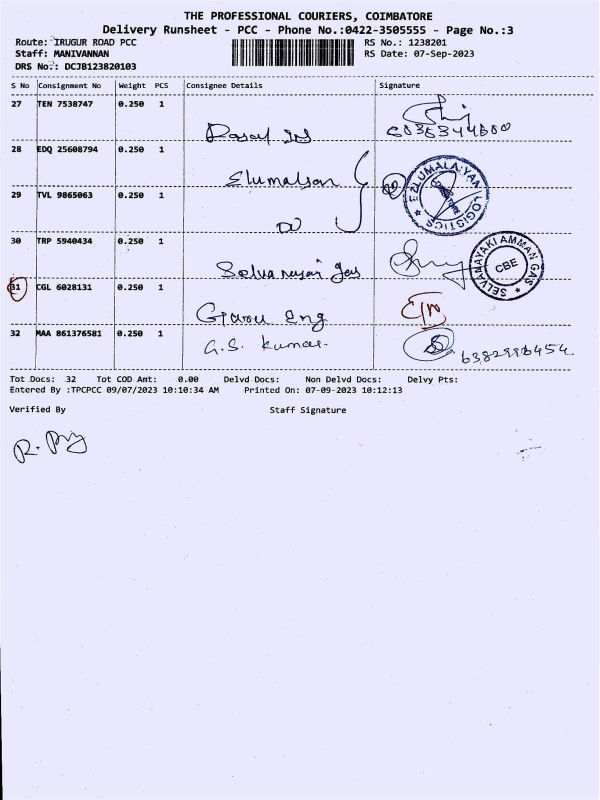 THE PROFESSIONAL COURIERS, COIMBATORE
Delivery Runsheet - PCC - Phone No.:0422-3505555 - Page No.:3
Route: IRUGUR ROAD PCC
RS No.: 1238201
Staff: MANIVANNAN
RS Date: 07-Sep-2023
DRS No.: DCJB123820103
S No Consignment No Weight PCS Consignee Details Signature
27 TEN 7538747 0.250 1
28 EDQ 25608794 0.250 1
Elumalayan
ELUMALAIYAN LOGISTICS
29 TVL 9865063 0.250 1
30 TRP 5940434 0.250 1
Selvanayaki gas
SELVANAYAKI AMMAN GAS
CBE
31 CGL 6028131 0.250 1
Eng
32 MAA 861376581 0.250 1
G.S. Kumar
Tot Docs: 32 Tot COD Amt: 0.00 Delvd Docs: Non Delvd Docs: Delvy Pts:
Entered By :TPCPCC 09/07/2023 10:10:34 AM Printed On: 07-09-2023 10:12:13
Verified By Staff Signature